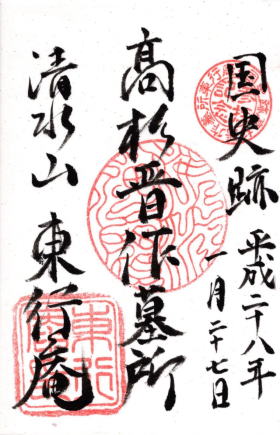 国史跡
平成二十八年
一月二十七日
高杉晋作墓所
清水山 東行庵